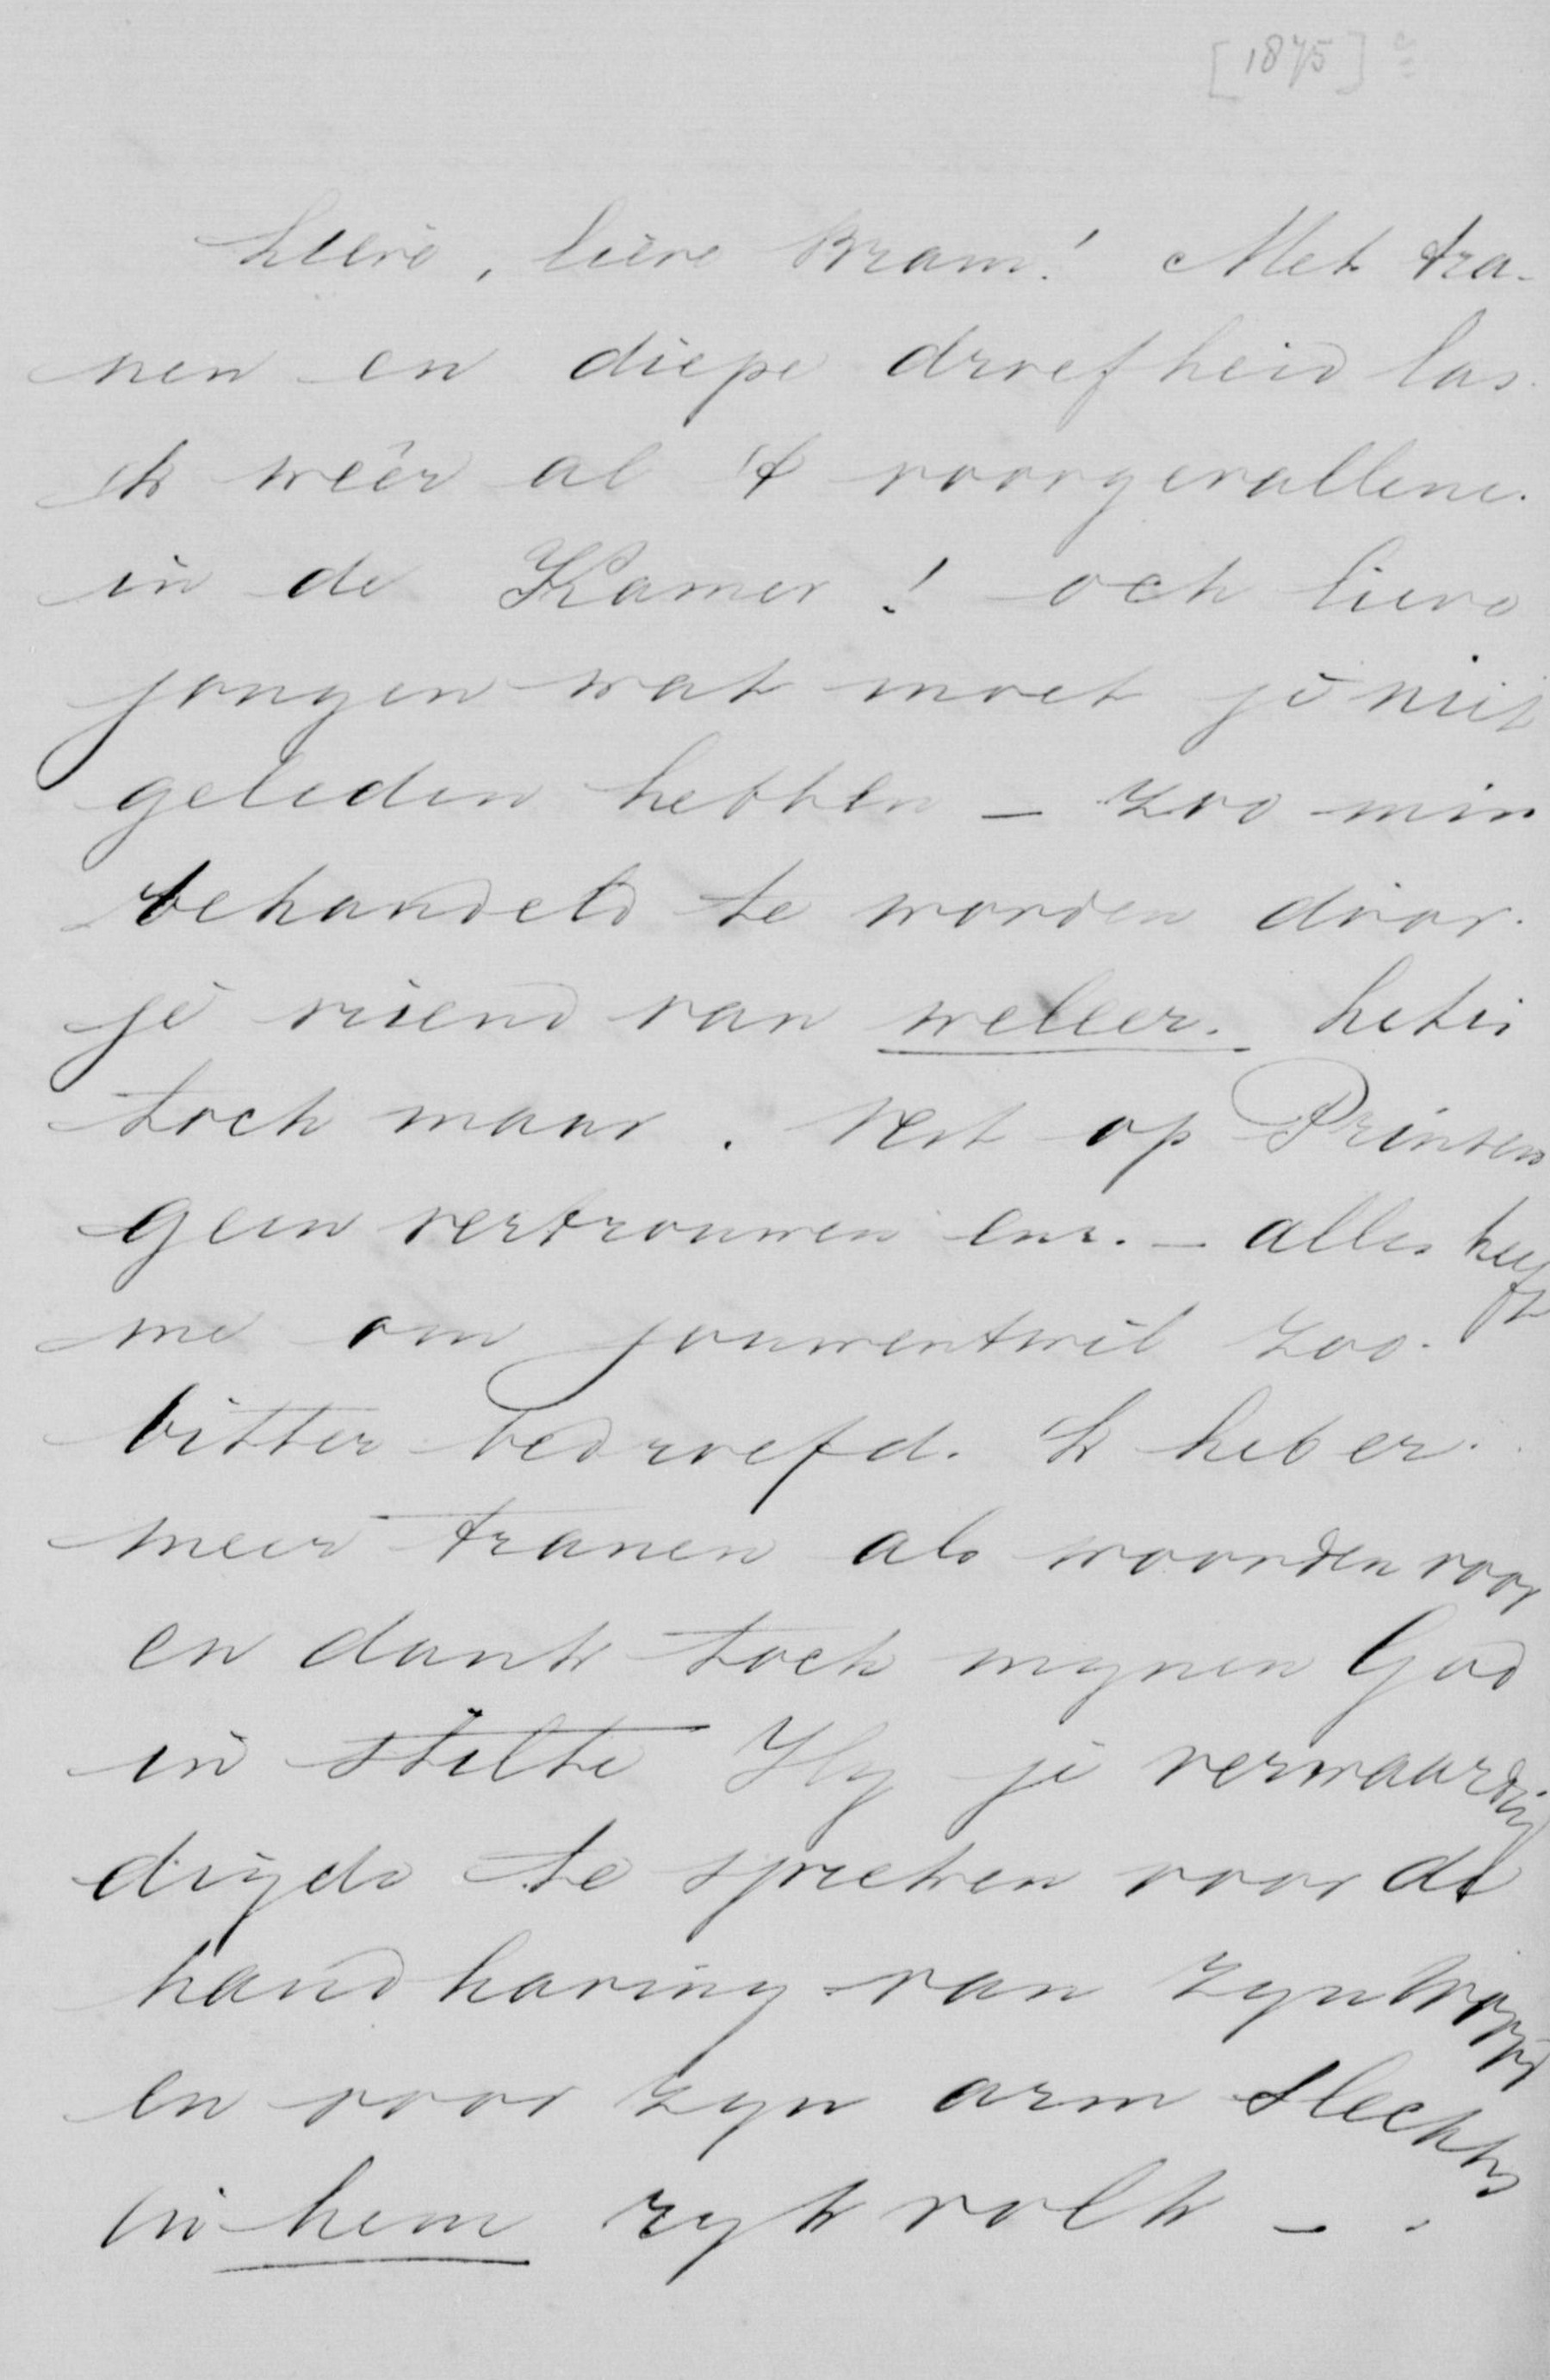 [1875]
Lieve, lieve Bram! Met tra-
nen en diepe droefheid las
ik weêr al 't voorgevallene
in de Kamer! och lieve
jongen wat moet je niet
geleden hebben – zoo min
behandeld te worden door
je vriend van weleer. het is
toch maar. Vest op Prinsen
geen vertrouwen enz. – alles heeft
me om jouwentwil zoo
bitter bedroefd. Ik heb er
meer tranen als woorden voor
en dank toch mynen God
in stilte Hy je verwaardig
digde te spreken voor de
handhaving van zyn
en voor zyn arm slechts
in hem ryk volk –